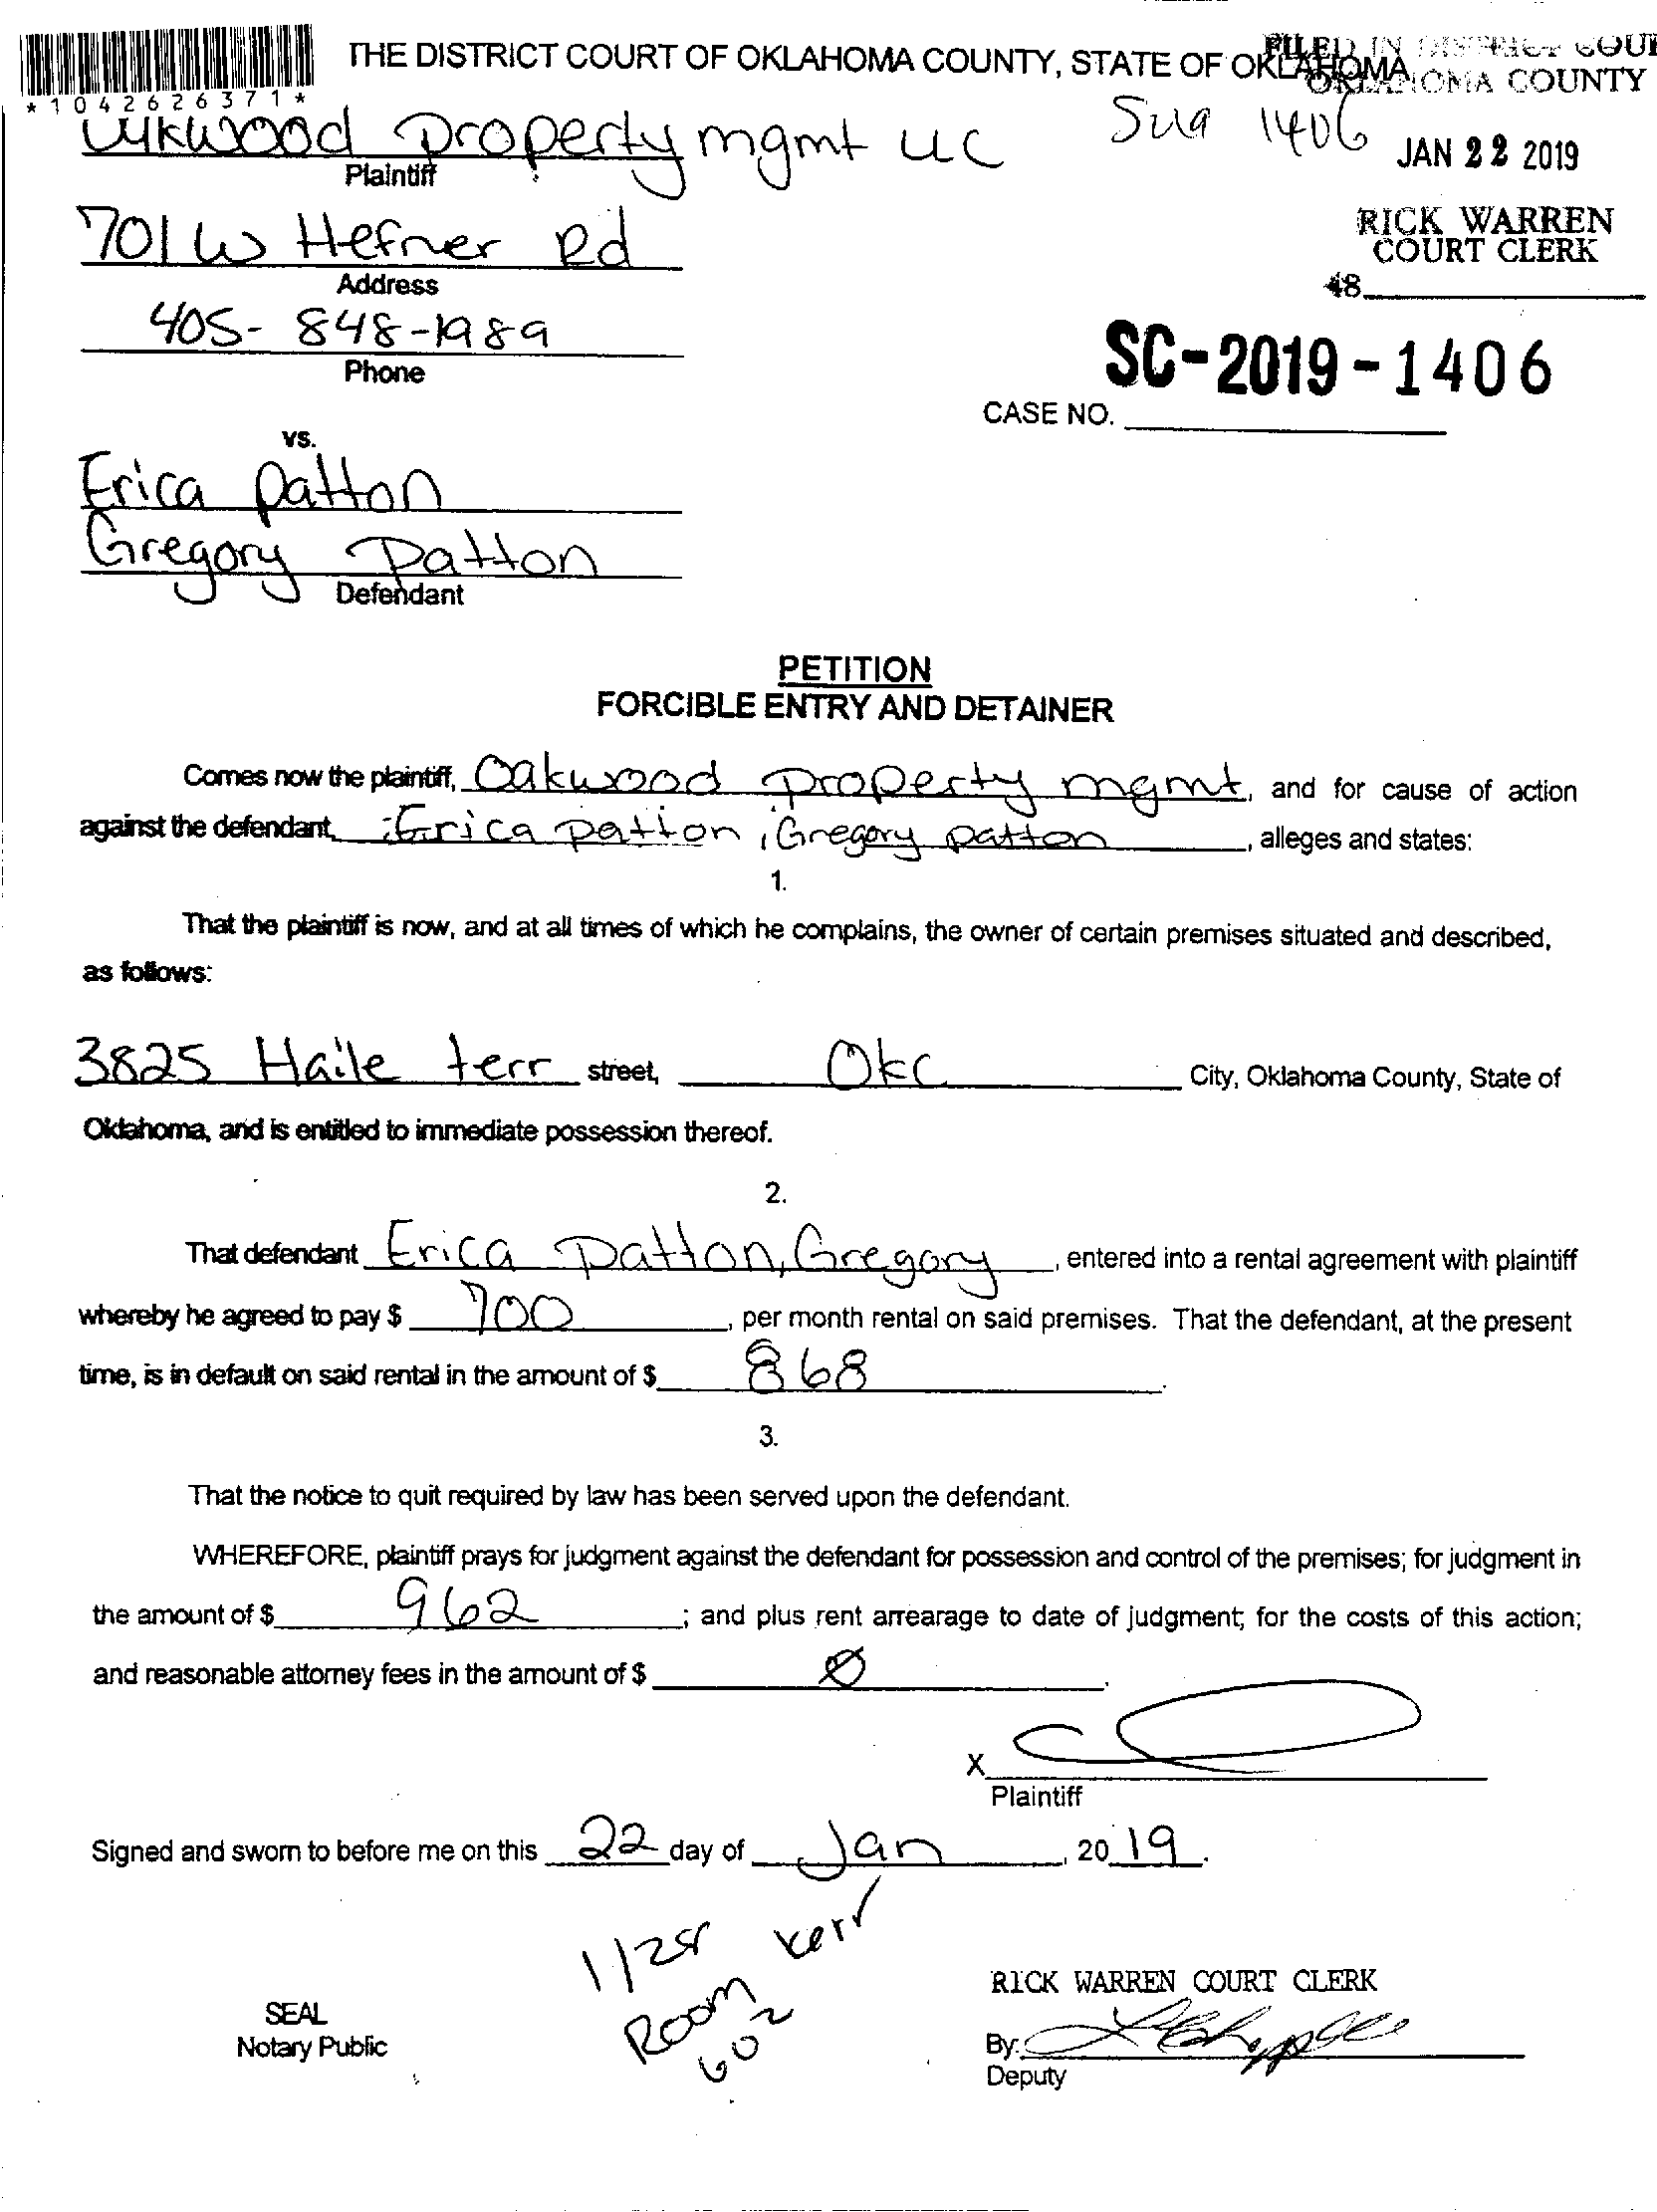 THE DISTRICT COURT OF OKLAHOMA COUNTY, STATE OF OKLAHOMA
FILED IN DISTRICT COUR
OKLAHOMA COUNTY
*1042626371*
property mgmt LLC
Plaintiff
1406
JAN 22 2019
701 W Hefner Rd
Address
RICK WARREN
COURT CLERK
48
405-848-1989
Phone
SC-2019-1406
CASE NO.
vs.
Erica patton
Gregory Patton
Defendant
PETITION
FORCIBLE ENTRY AND DETAINER
Comes now the plaintiff, Oakwood property mgmt, and for cause of action
against the defendant, Erica patton, Gregory patton, alleges and states:
1.
That the plaintiff is now, and at all times of which he complains, the owner of certain premises situated and described,
as follows:
3825 Haile terr street, Okc City, Oklahoma County, State of
Oklahoma, and is entitled to immediate possession thereof.
2.
That defendant Erica Patton, Gregory, entered into a rental agreement with plaintiff
whereby he agreed to pay $ 700, per month rental on said premises. That the defendant, at the present
time, is in default on said rental in the amount of $ 868.
3.
That the notice to quit required by law has been served upon the defendant.
WHEREFORE, plaintiff prays for judgment against the defendant for possession and control of the premises; for judgment in
the amount of $ 962; and plus rent arrearage to date of judgment; for the costs of this action;
and reasonable attorney fees in the amount of $ 0.
X
Plaintiff
Signed and sworn to before me on this 22 day of Jan, 20 19.
kerr
Room
602
RICK WARREN COURT CLERK
SEAL
Notary Public
By:
Deputy